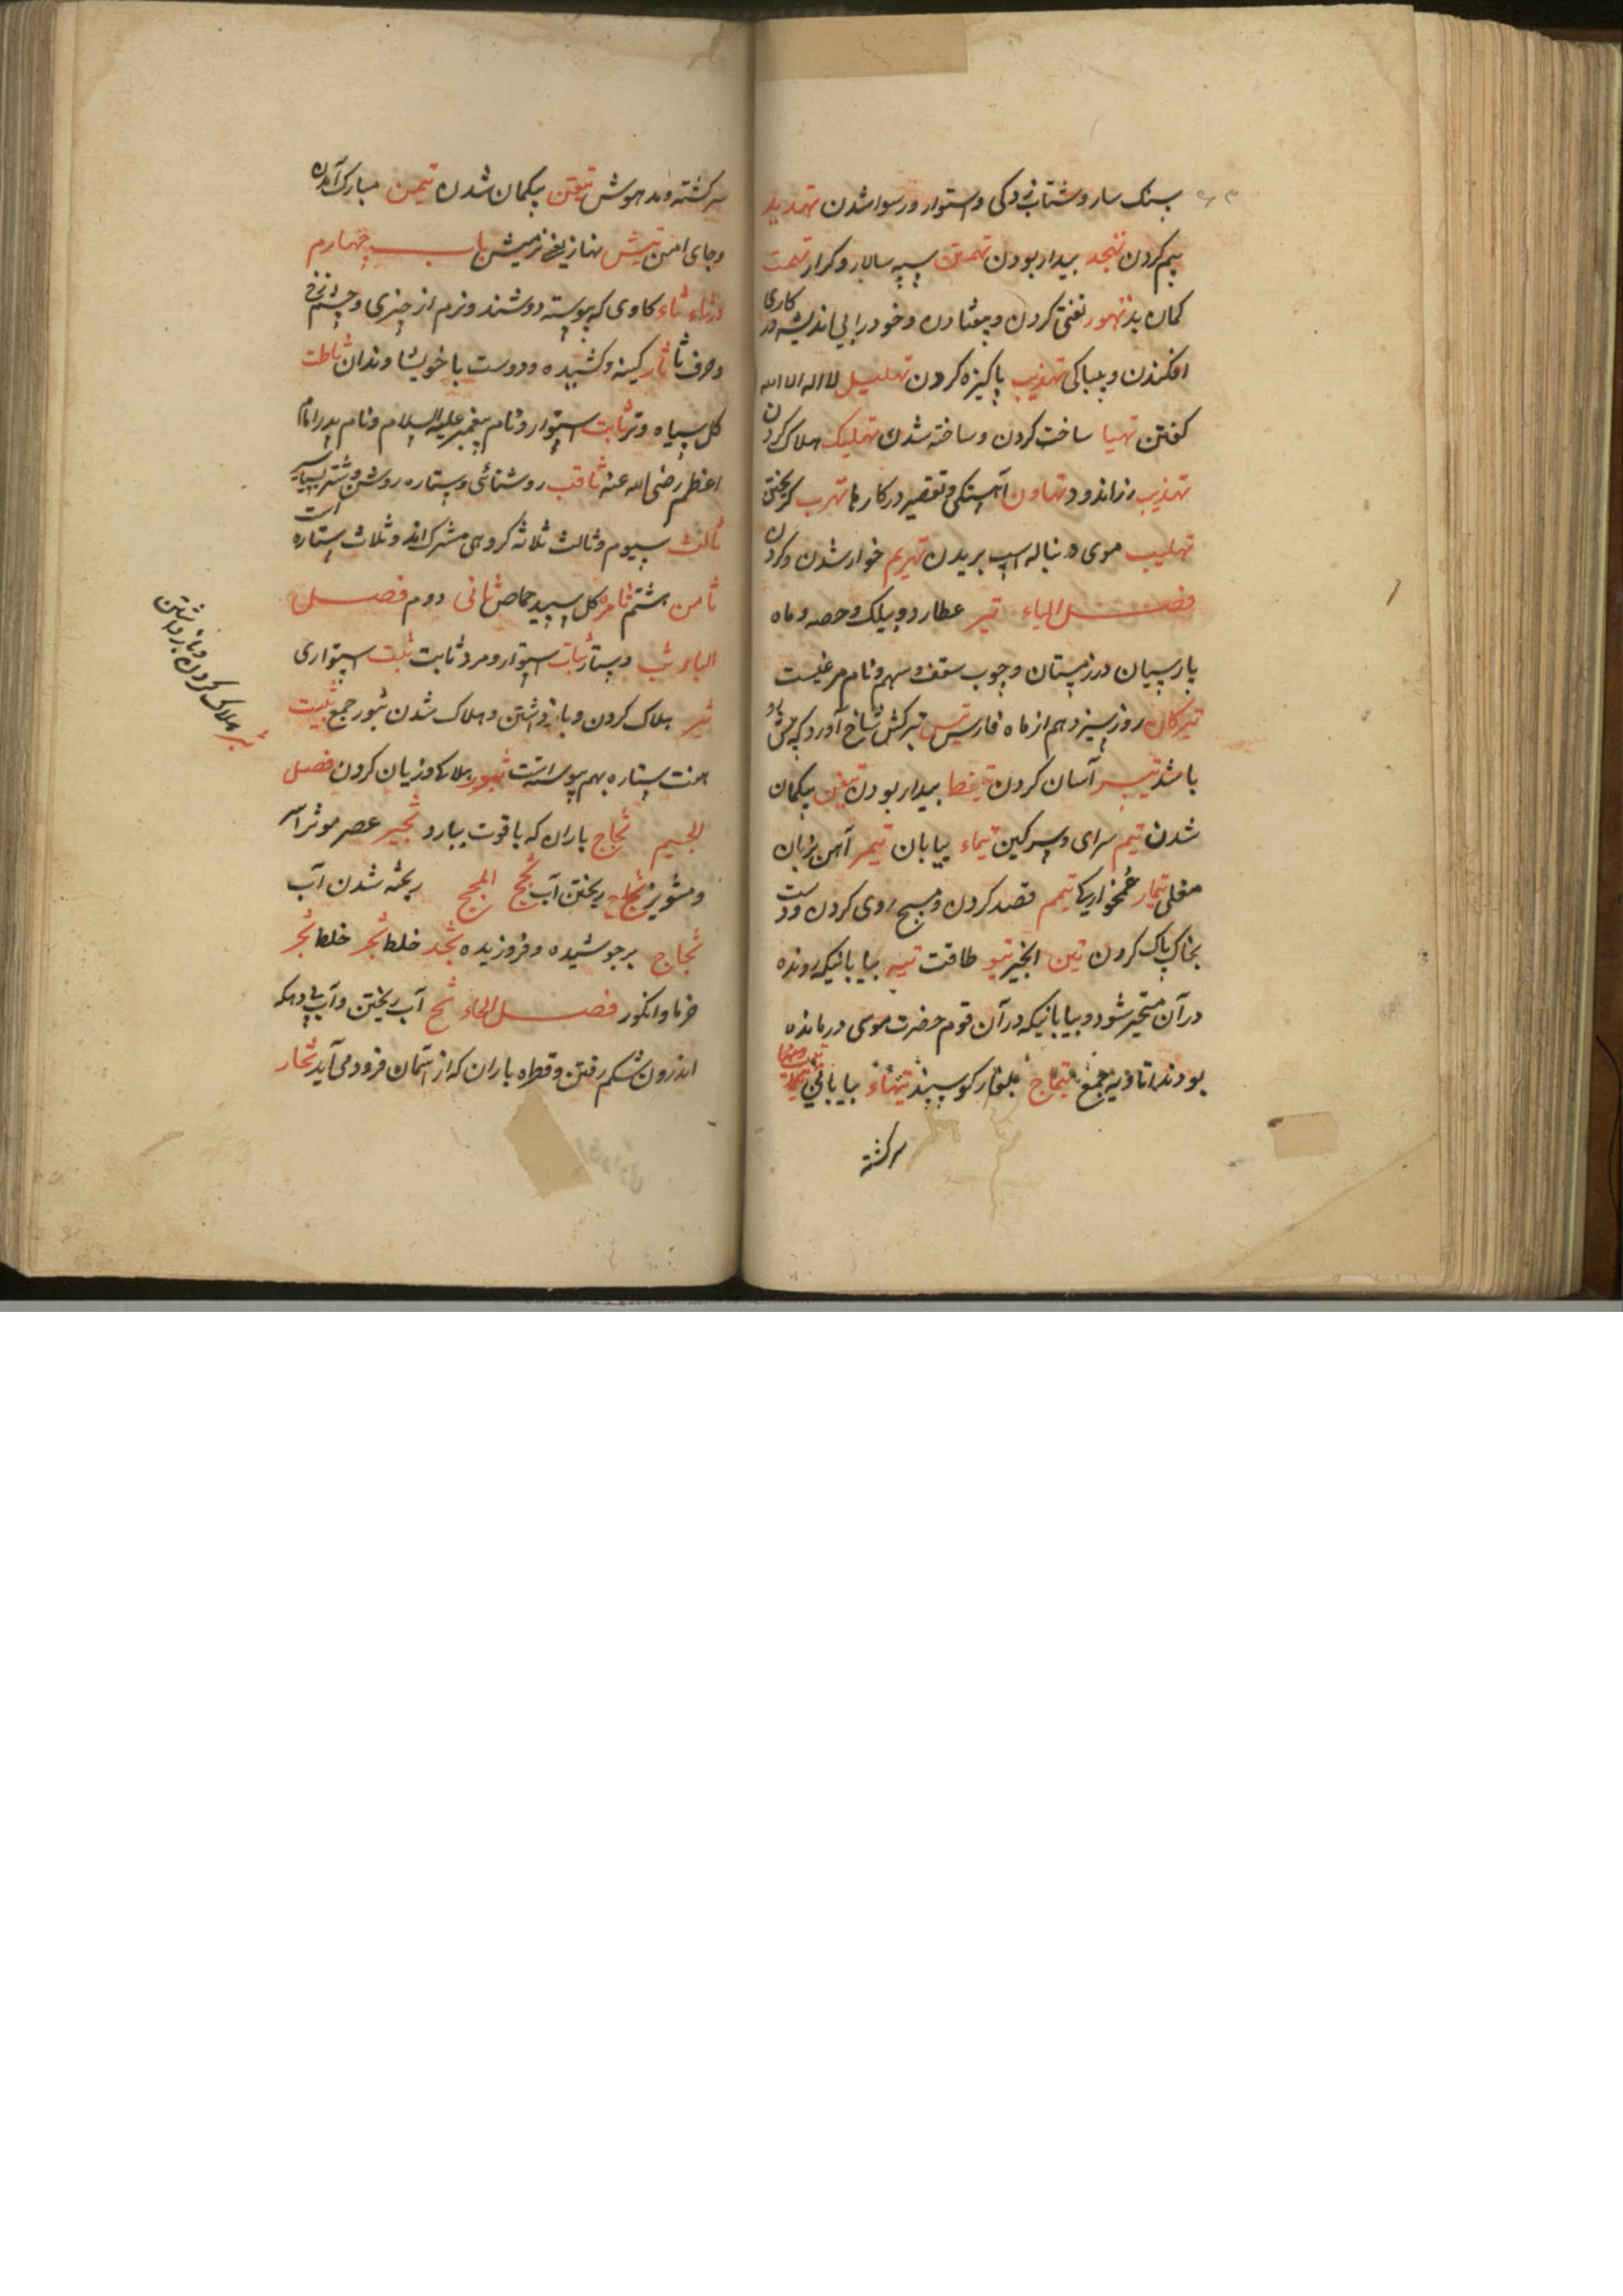 بسنک سار و شتاب زدکی و استوار و رسوا شدن تهدید
بیم کردن تهجد بیدار بودن تهمتن سپه سالار و کرار تهمت
کمان بد تهور تفتی کردن و بیفتادن و خود را بی اندیشه در کاری
افکندن و بیباکی تهذیب پاکیزه کردن تهلیل لا اله الا الله
کفتن تهیا ساخت کردن و ساخته شدن تهلیک هلاک کردن
تهذیب زراندود تهاون آهستکی و تقصیر در کارها تهرب کریختن
تهلیب موی دنباله اسپ بریدن تهریم خوار شدن و کردن
فصل الیاء تیر عطارد و بیلک و حصه و ماه
پارسیان در زمستان و چوب سقف و سهم و نام مرغیست
تیرکان روز سیزدهم از ماه فارس تیس تیر کش شاخ آورد که پیش رو
باشد تیسر آسان کردن تیقظ بیدار بودن تیقن بیکمان
شدن تیم سرای و سرکین تیماء بیابان تیمر آهن بزبان
مغلی تیمار غمخواریکا تیمم قصد کردن و مسح روی کردن و دست
بخاک پاک کردن تین انجیر تیو طاقت تیه بیابانیکه رونده
در آن متحیر شود و بیابانیکه در آن قوم حضرت موسی درمانده
بودند اتاویه جمع تیماج بلغار کوسپند تیهاء بیابانی
سرکشته
سرکشته و مدهوش تیقن بیکمان شدن تیمن مبارک آمدن
و جای امن تیش نهاز یعنی نر میش باب چهارم
در ثاء ثاء کاوی که پیوسته دوشند و نرم از چیزی و چشم زخ
و حرف ثا ثار کینه و کشیده و دوست با خویشاوندان ثاطت
کل سیاه و تر ثابت استوار و نام پیغمبر علیه السلام و نام پدر امام
اعظم رضی الله عنه ثاقب روشنائی و ستاره روشن و شتر بسیار
ثالث سیوم و ثالث ثلاثه کروهی مشرک اند و ثلاث ستاره است
ثامن هشتم ثامره کل سپید حماض ثانی دوم فصل
الباء ثب دستار ثبات استوار و مرد ثابت ثبت استواری
ثبر هلاک کردن و باز داشتن و هلاک شدن ثبور جمع ثبیت
هفت ستاره بهم پیوسته است ثبور هلاک و زیان کردن فصل
الجیم ثجاج باران که با قوت ببارد ثجیر عصر موثر است
و مشویز ثجاج ریختن آب ثجج المجج ریخته شدن آب
ثجاج برجوشیده و فروزیده ثجد خلط ثجر خلط ثجر
خرما و انکور فصل الحاء ثح آب ریختن و آب دهکه
اندرون شکم رفتن و قطره باران که از آسمان فرود می آید ثحار
ثبر هلاک کردن و باز داشتن